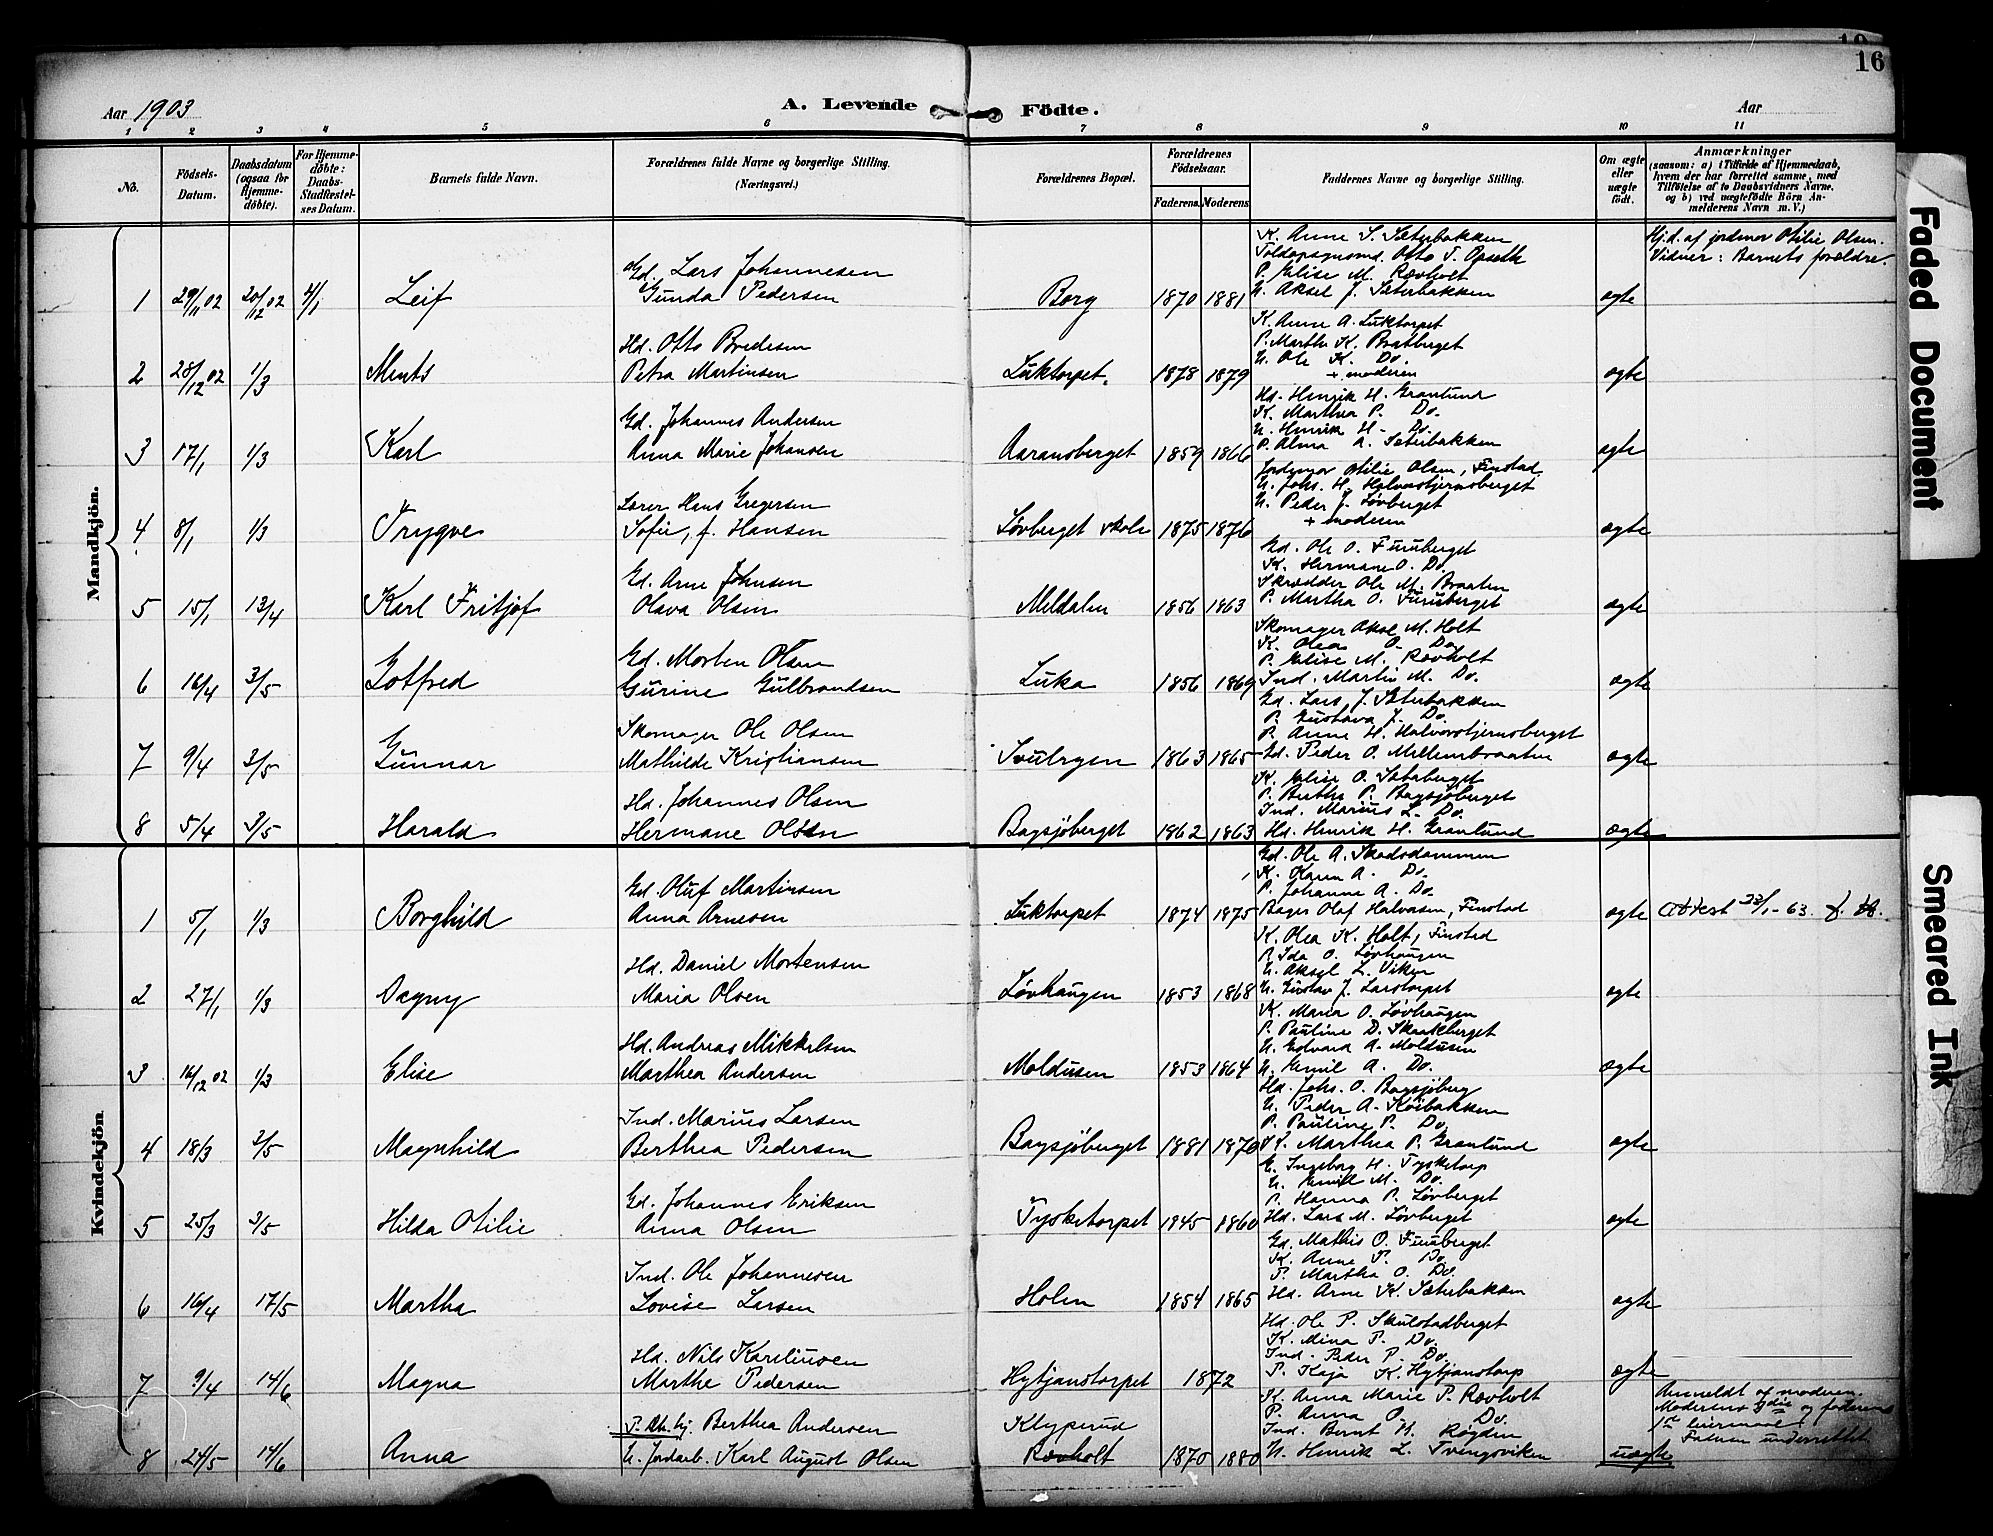 16
Aar 1903
A. Levende Födte.
Aar
1 2 3 4 5 6 7 8 9 10 11
No.
Födsels-Datum.
Daabsdatum (ogsaa for Hjemme-döbte).
For Hjemme-döbte: Daabs-Stadfæstel-ses Datum.
Barnets fulde Navn.
Forældrenes fulde Navne og borgerlige Stilling. (Næringsvei.)
Forældrenes Bopæl.
Forældrenes Födselsaar.
Faderens. Moderens.
Faddernes Navne og borgerlige Stilling.
Om ægte eller uægte födt.
Anmærkninger (saasom: a) i Tilfælde af Hjemmedaab, hvem der har forrettet samme, med Tilföielse af to Daabsvidners Navne, og b) ved uægtefödte Börn An-melderens Navn m. V.)
Mandkjön.
K. Anne S. Sæterbakken
Hj.d. af jordmor Otilie Olsen.
Toldopsynsmd. Otto T. Opseth
Vidner: Barnets forældre
Gd. Lars Johannesen
P. Elise M. Rævholt
1 29/11 02 20/12 02 4/1 Leif Gunda Pedersen Borg 1870 1881 U. Aksel J. Sæterbakken ægte
K. Anne A. Luktorpet
Hd. Otto Bredesen
P. Marthe K. Bratberget
U. Ole K. Do.
2 28/12 02 1/3 Petra Martinsen Luktorpet. 1878 1879 + moderen ægte
Hd. Henrik H. Granlund
K. Marthea P. Do.
Gd. Johannes Andersen
U. Henrik H. Do.
3 17/1 1/3 Karl Anna Marie Johansen Aaransberget 1859 1866 P. Alma A. Sæterbakken ægte
Jordemor Otilie Olsen, Finstad
U. Johs. H. Halvorstjernsberget
Lærer Hans Gregersen
U. Peder J. Løvberget
4 8/1 1/3 Trygve Sofie, f. Hansen Løvberget skole 1875 1876 + moderen ægte
Gd. Ole O. Furuberget
K. Hermane O. Do.
Gd. Arne Johnsen
Skrædder Ole M. Braaten
5 15/1 13/4 Karl Fritjof Olava Olsen Meldalen 1856 1863 P. Martha O. Furuberget ægte
Skomager Aksel M. Holt
K. Olea O. Do.
Gd. Morten Olsen
P. Elise M. Rævholt
6 16/4 3/5 Gotfred Gurine Gulbrandsen Luka 1856 1869 Ind. Martin M. Do. ægte
Gd. Lars J. Sæterbakken
P. Gustava J. Do.
Skomager Ole Olsen
P. Anne H. Halvorstjernsberget
7 9/4 3/5 Gunnar Mathilde Kristiansen 1863 1865 Gd. Peder O. Mellembraaten ægte
K. Elise O. Sæterberget
P. Berthe P. Bagsjøberget
Hd. Johannes Olsen
Ind. Marius L. Do.
8 5/4 3/5 Harald Hermane Olsen Bagsjøberget 1862 1863 Hd. Henrik H. Granlund ægte
Kvindekjön
Gd. Ole A. Skadsdammen
K. Karen A. Do.
Gd. Oluf Martinsen
P. Johanne A. Do.
1 5/1 1/3 Borghild Anna Arnesen Luktorpet 1874 1875 Bager Olaf Halvorsen, Finstad ægte Attest 23/1-63.
K. Olea K. Holt, Finstad
P. Ida O. Løvhaugen
Hd. Daniel Mortensen
U. Aksel L. Viken
2 27/1 1/3 Dagny Maria Olsen Løvhaugen 1853 1868 U. Gustav J. Larstorpet ægte
K. Maria O. Løvhaugen
P. Pauline D. Skarkberget
Hd. Andreas Mikkelsen
U. Edvard A. Moldusen
3 16/12 02 1/3 Elise Marthea Andersen Moldusen 1853 1864 U. Emil A. Do. ægte
Hd. Johs. O. Bagsjøberg
U. Peder A. Køibakken
Ind. Marius Larsen
P. Pauline P. Do.
4 18/3 3/5 Magnhild Berthea Pedersen Bagsjøberget 1881 1870 K. Marthea P. Granlund ægte
E. Ingeborg H. Tysketorp
U. Emil M. Do.
Gd. Johannes Eriksen
P. Hanna P. Løvberget
5 25/3 3/5 Hilda Otilie Anna Olsen Tysketorpet 1845 1860 Hd. Lars M. Løvberget ægte
Gd. Mathis O. Furuberget
K. Anne P. Do.
Ind. Ole Johannesen
P. Martha O. Do.
6 16/4 17/5 Martha Lovise Larsen Holen 1854 1865 Hd. Arne K. Sæterbakken ægte
Hd. Ole P. Skulstadberget
K. Mina P. Do.
Hd. Nils Karelinsen
Ind. Peder P. Do.
7 9/4 14/6 Magna Marthe Pedersen Hytjanstorpet 1872 P. Kaja K. Hytjanstorp ægte
K. Anna Marie P. Rævholt
Anmeldt af moderen.
P. Anna O. Do.
Moderens 2die og faderens
P. Arb. hj. Berthea Andersen Klyperud
Ind. Bernt H. Røgden
1ste leiermaal.
Faderen underrettet
8 24/5 14/6 Anna U. Jordarb. Karl August Olsen Rævholt 1870 1880 U. Henrik L. Tvengsviken uægte
Faded Document
Smeared Ink